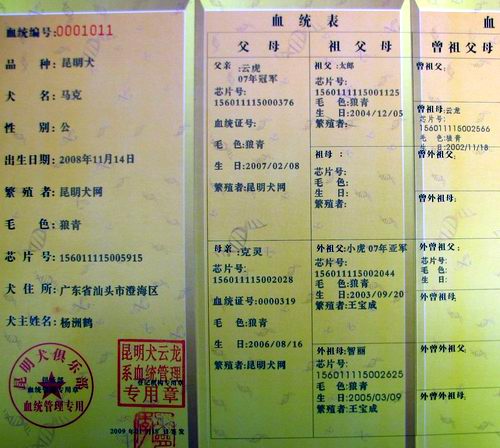 血统编号:0001011
品 种: 昆明犬
犬 名: 马克
性 别: 公
出生日期: 2008年11月14日
繁 殖 者: 昆明犬网
毛 色: 狼青
芯 片 号: 156011115005915
犬 住 所: 广东省汕头市澄海区
犬主姓名: 杨洲鹤
昆明犬俱乐部
血统管理专用章
血统管理专用
昆明犬云龙
系血统管理
登记机构专用章
专用章
血 统 表
父 母
父亲 :云虎
07年冠军
芯片号:
156011115000376
血统证号:
毛 色:狼青
生 日:2007/02/08
繁殖者:昆明犬网
母亲 :克灵
芯片号:
156011115002028
血统证号:0000319
毛 色:狼青
生 日:2006/08/16
繁殖者:昆明犬网
祖 父 母
祖父 :太郎
芯片号:
156011115001125
毛 色:狼青
生 日:2004/12/05
繁殖者:
祖母 :
芯片号:
毛 色:
生 日:
繁殖者:
外祖父:小虎 07年亚军
芯片号:
156011115002044
毛 色:狼青
生 日:2003/09/20
繁殖者:王宝成
外祖母:智丽
芯片号:
156011115002625
毛 色:狼青
生 日:2005/03/09
繁殖者:王宝成
血
曾 祖 父 母
曾祖父:
曾祖母:云龙
芯片号:
156011115002566
毛 色:狼青
生 日:2002/11/18
曾外祖父:
曾外祖母:
外曾祖父:
芯片号:
毛 色:
生 日:
外曾祖母:
外曾外祖父:
外曾外祖母: